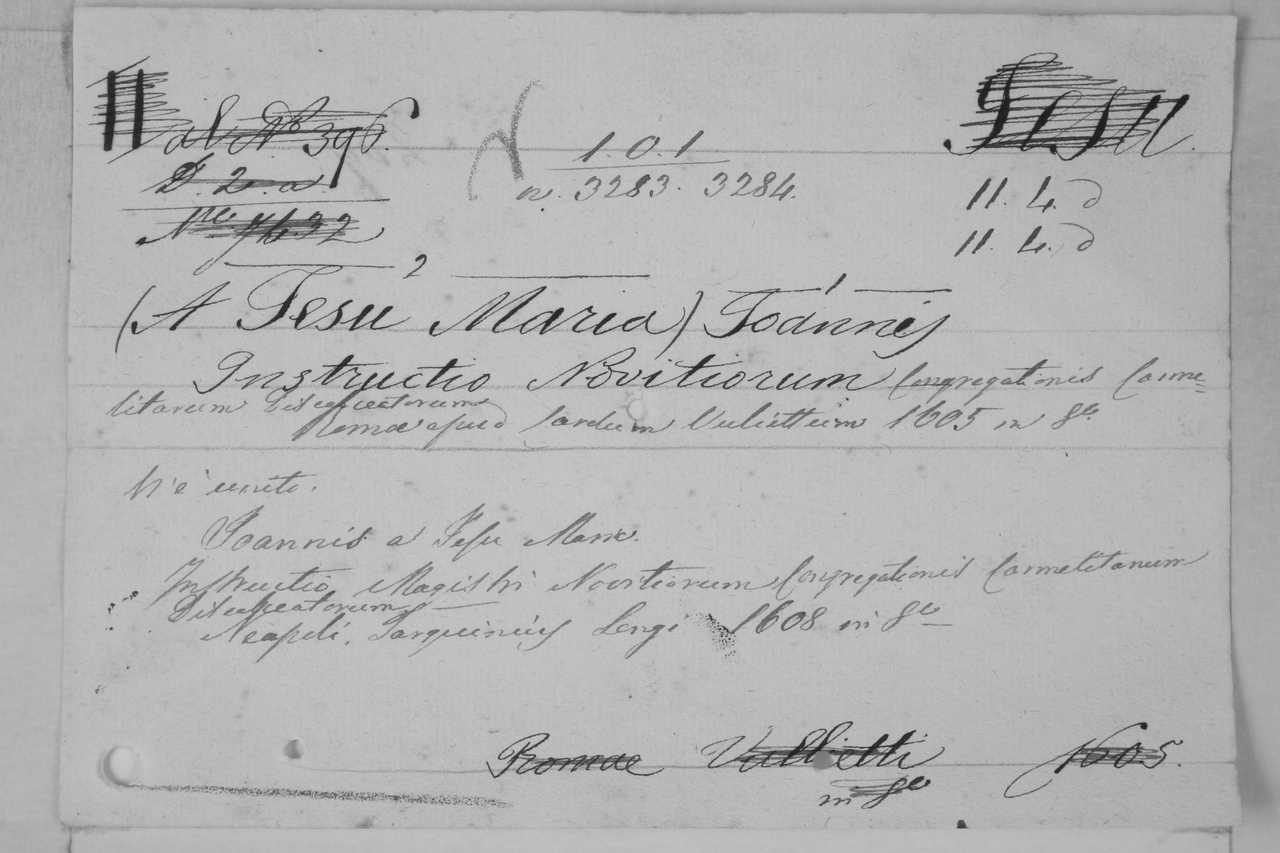 Val N.o 396.
D. 2. a
1. 0. 1
n. 3283. 3284.
Jesu.
11. 4. d
11. 4. d
Nro. 7632
2 1
(A Jesu Maria) Joannis
Instructio Novitiorum Congregationis Carme=
litarum Discalceatorum
Romae apud Carolum Vuliettum 1605 in 8o
Vi è unito.
Joannis a Jesu Mariæ.
Instructio Magistri Novitiorum Congregationis Carmelitanum
Discalceatorum
Neapoli. Tarquinius Longi 1608 in 8o
Romae Vullietti 1605.
in 8o